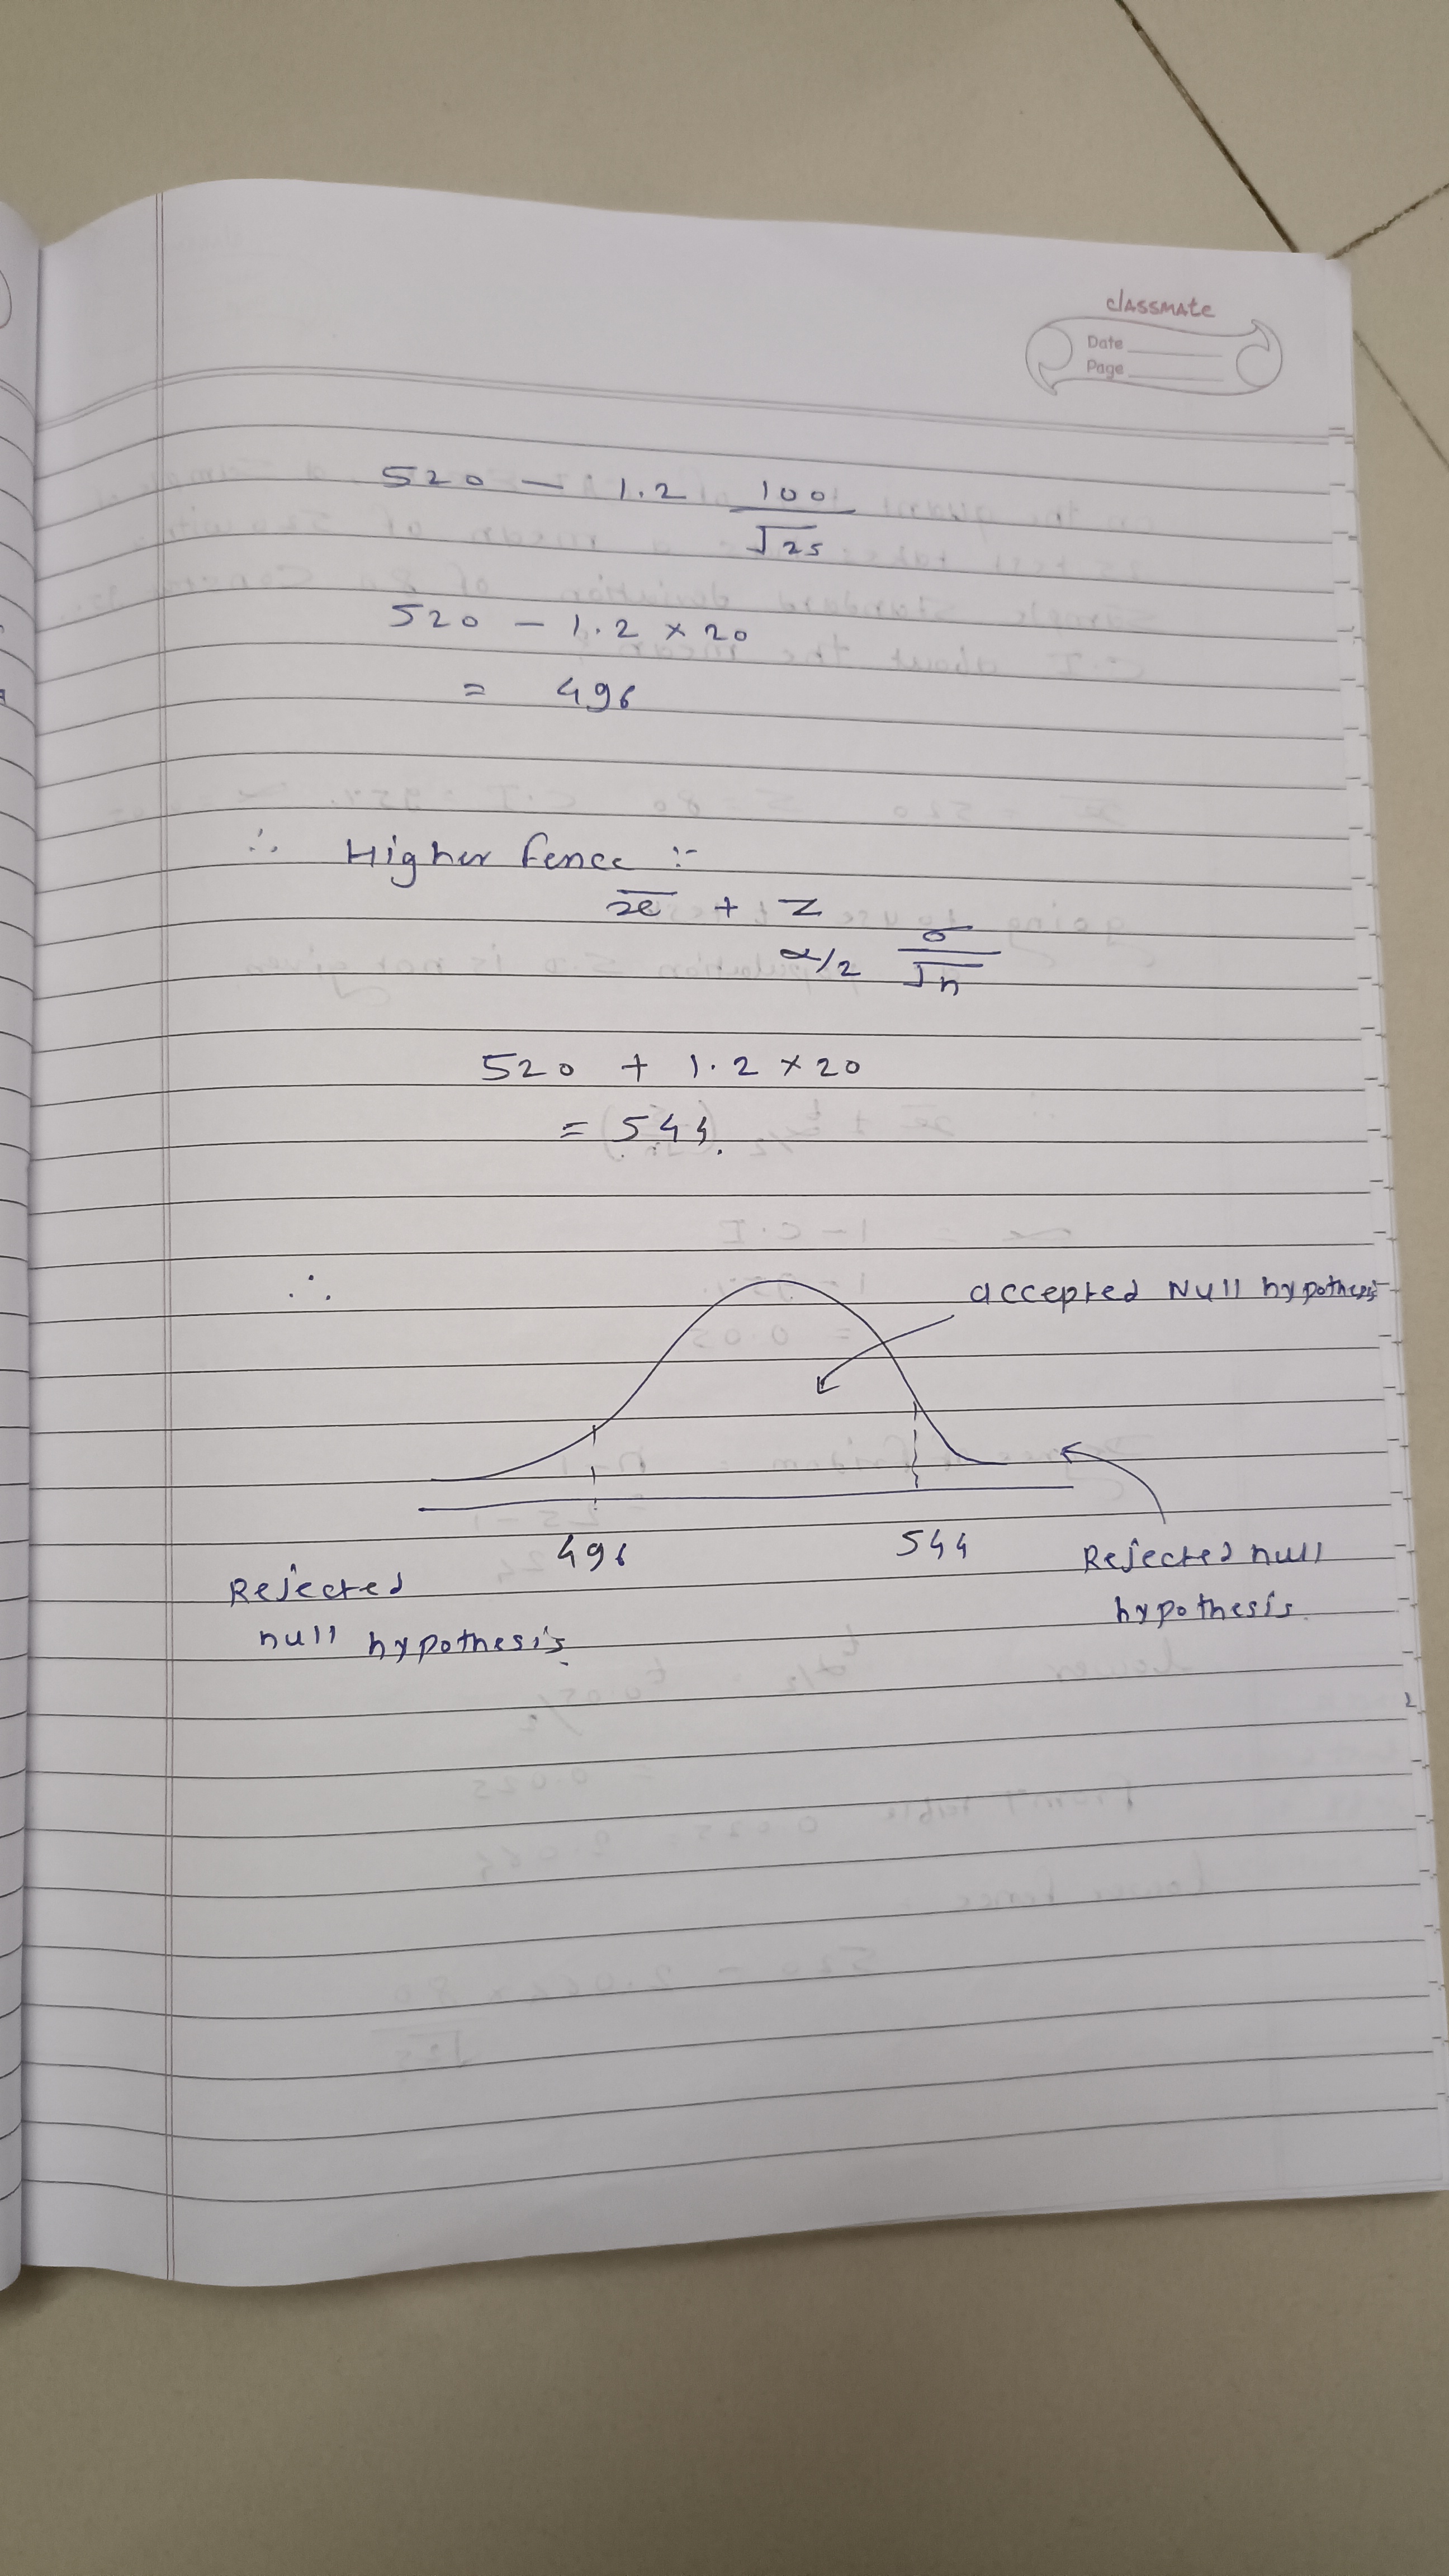 classmate
Date
Page
520 - 1.2 100/√25
520 - 1.2 × 20
= 496
∴ Higher fence :-
x̄ + z α/2 σ/√n
520 + 1.2 × 20
= 544.
∴
accepted Null hypothesis
496
544
Rejected null hypothesis.
Rejected null hypothesis.